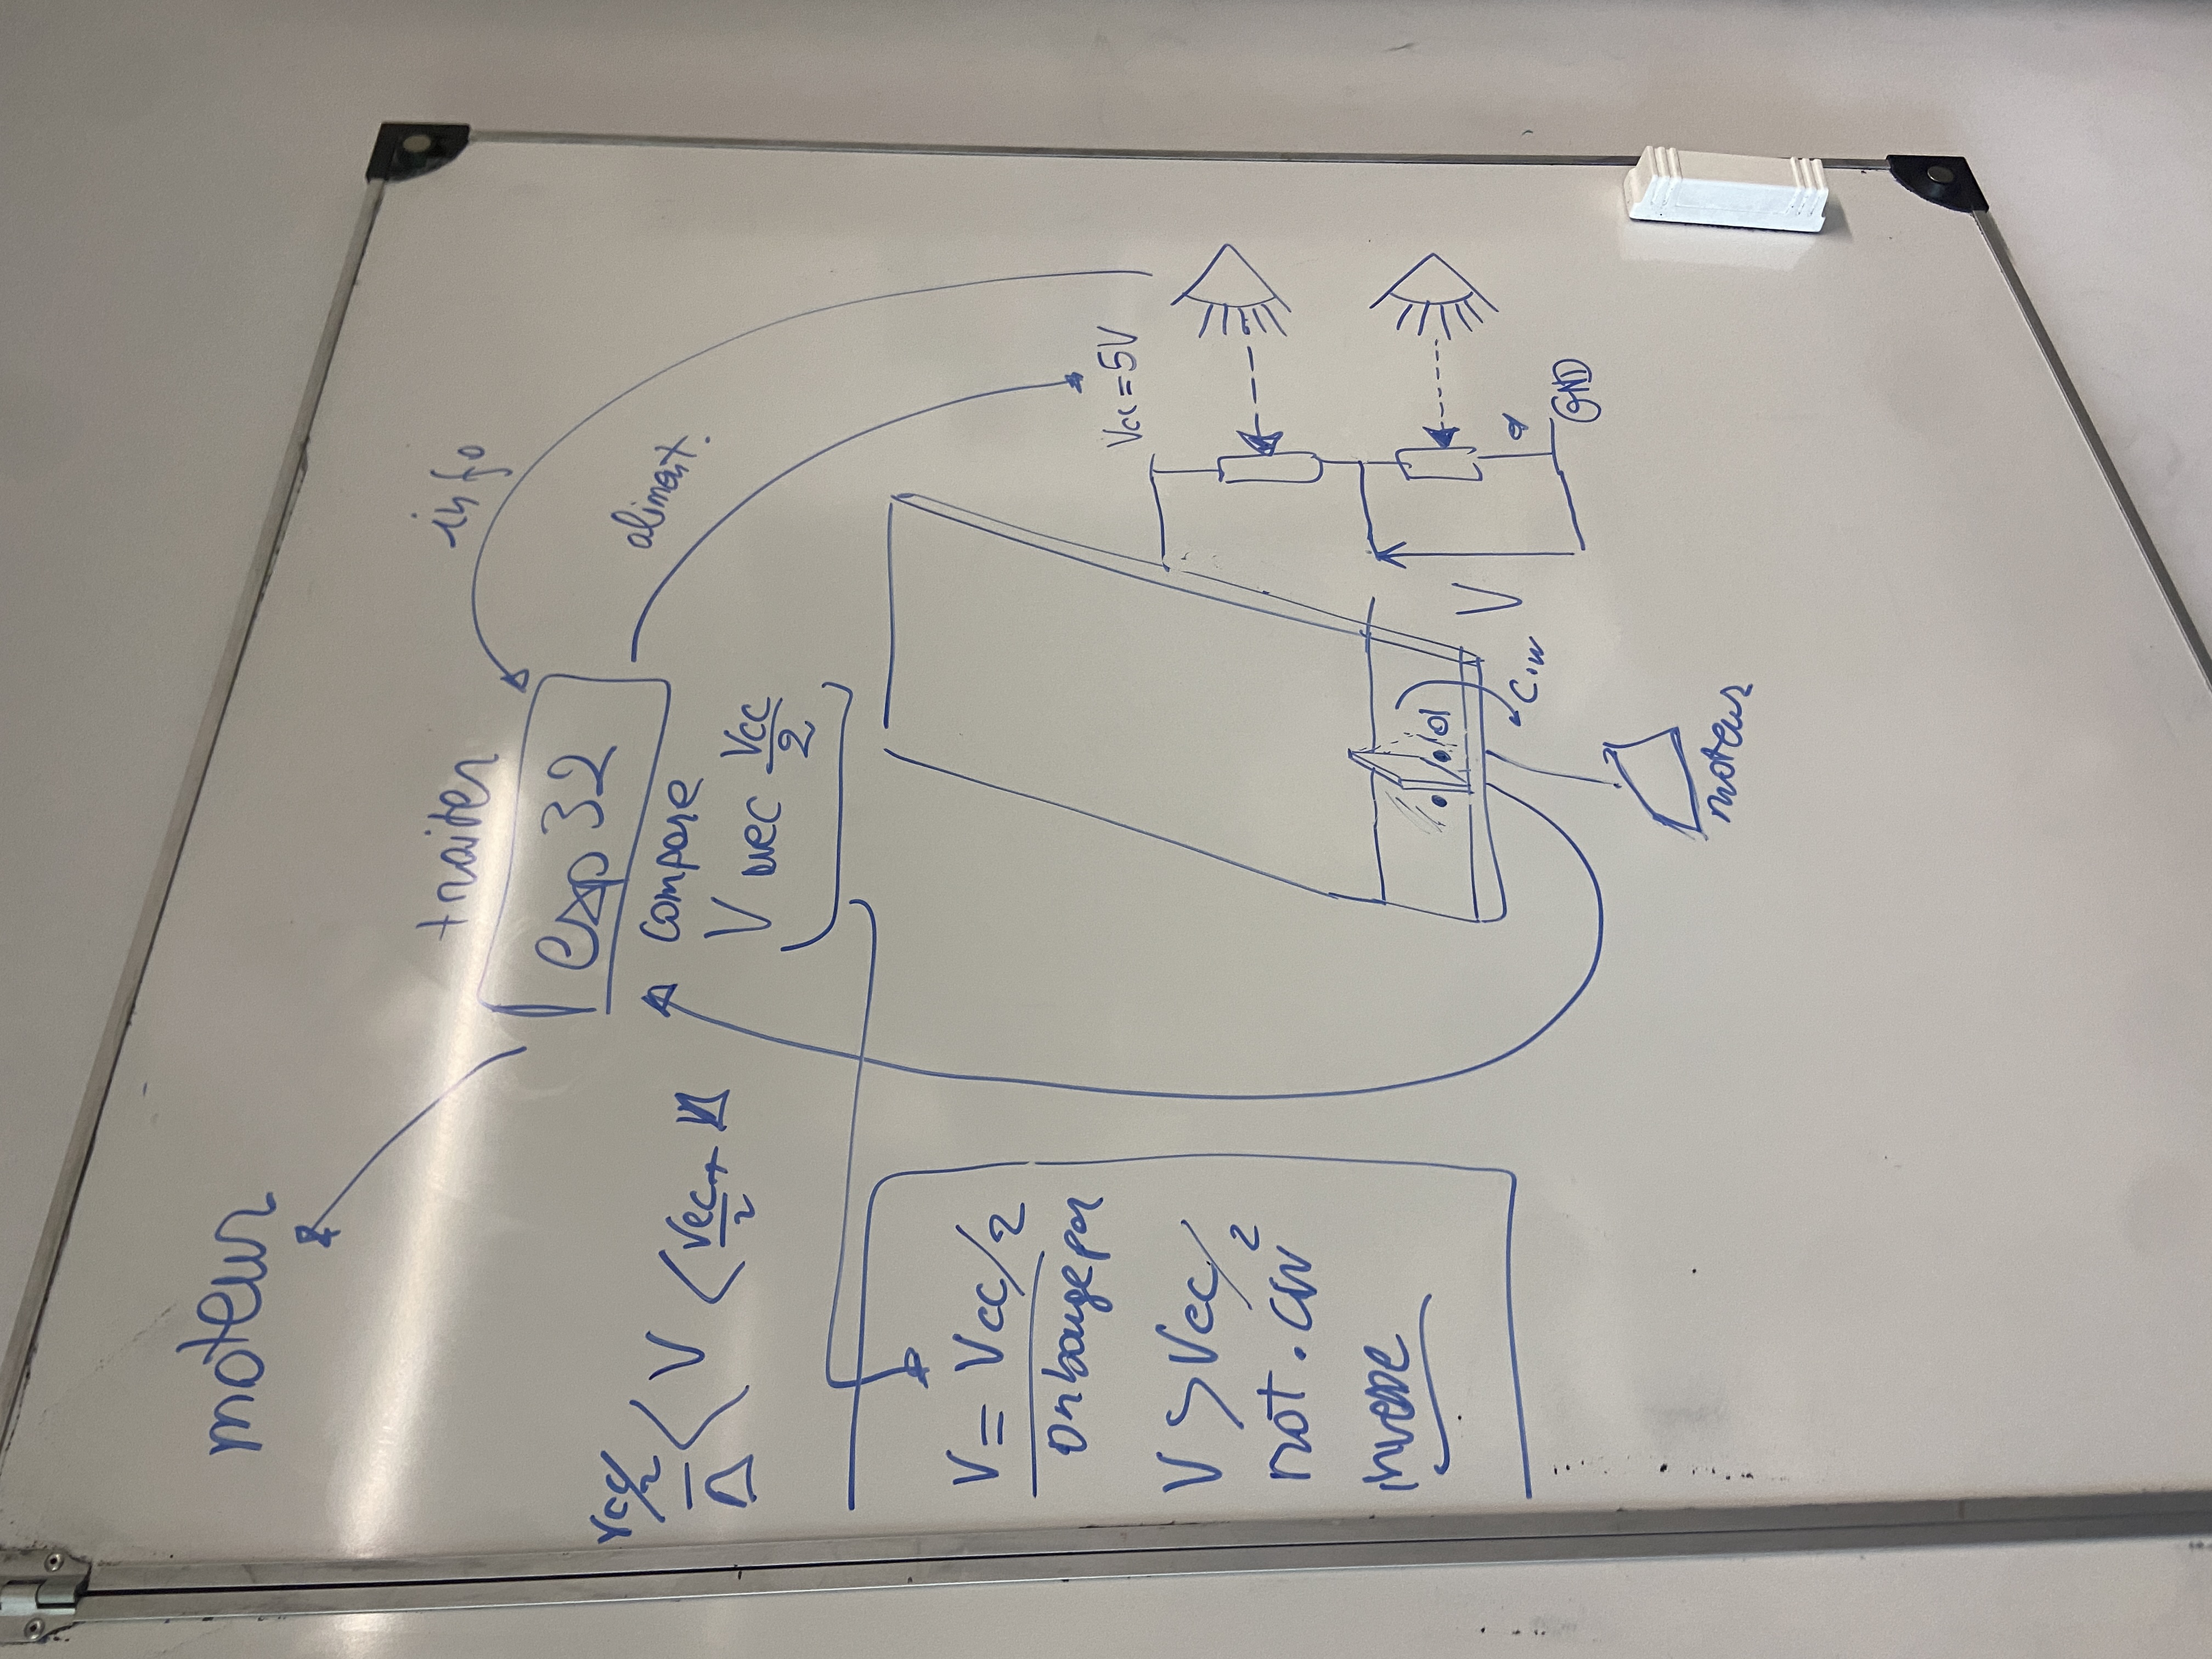 moteur
traiter
info
esp32
aliment.
compare
V avec Vcc/2
Vcc/2 - Δ < V < Vcc/2 + Δ
V = Vcc/2
on bouge pas
V > Vcc/2
rot. cw
inverse
Vcc = 5V
V
c.w
GND
moteur